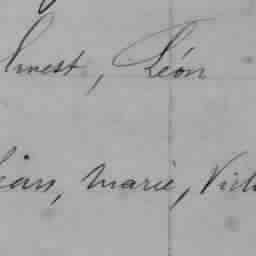 Ernest, Léon
Jean, Marie, Vict